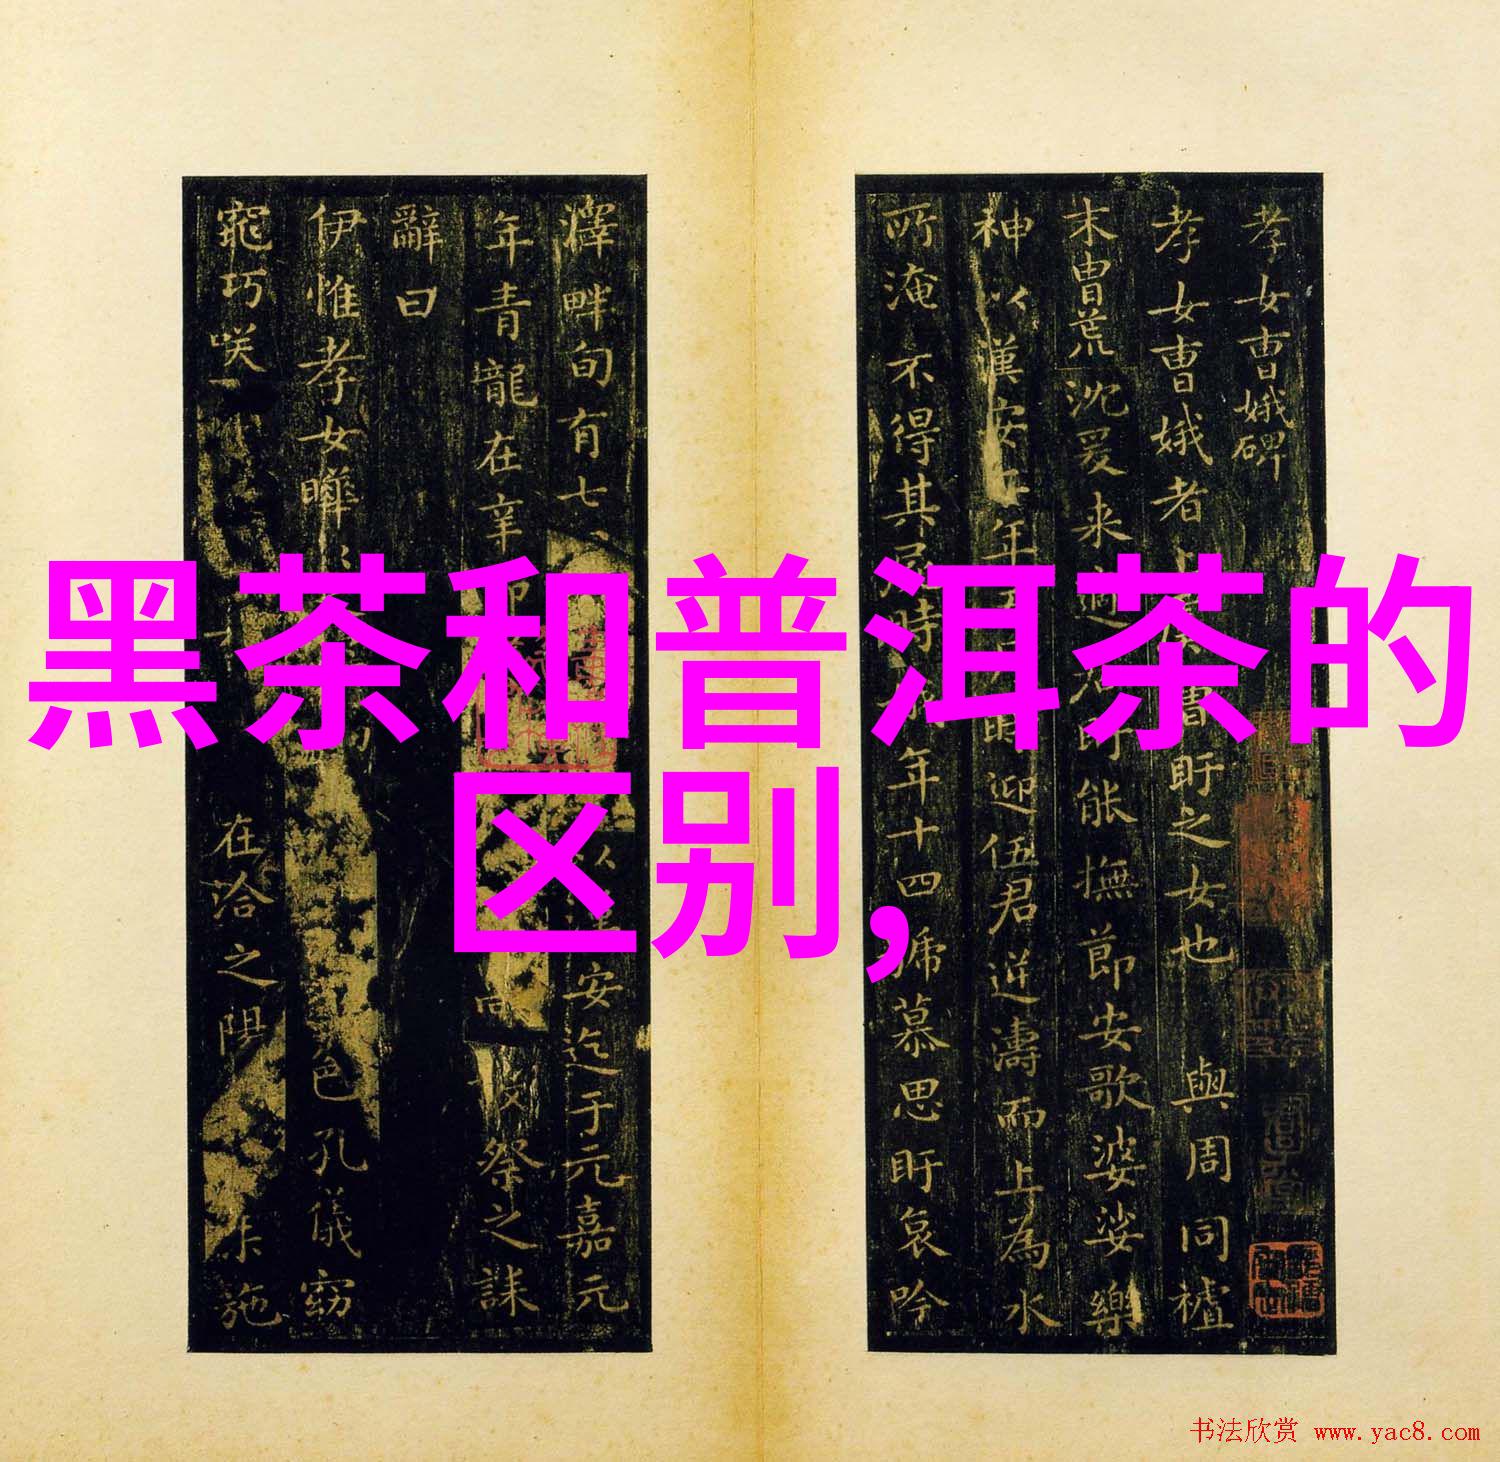 孝女曹娥碑
孝女曹娥者上虞曹盱之女也 與周同禇
末胄荒沈爰来適居盱能撫節安歌婆娑樂
神以漢安二年五月迎伍君逆濤而上為水
所淹不得其屍時娥年十四號慕思盱哀吟
澤畔旬有七
年青龍在辛卯
安迄于元嘉元
祭之誄
辭曰
伊惟孝女曄
色孔儀窈
窕巧咲
在洽之陽
施
黑茶和普洱茶的
区别,
书法欣赏 www.yac8.com